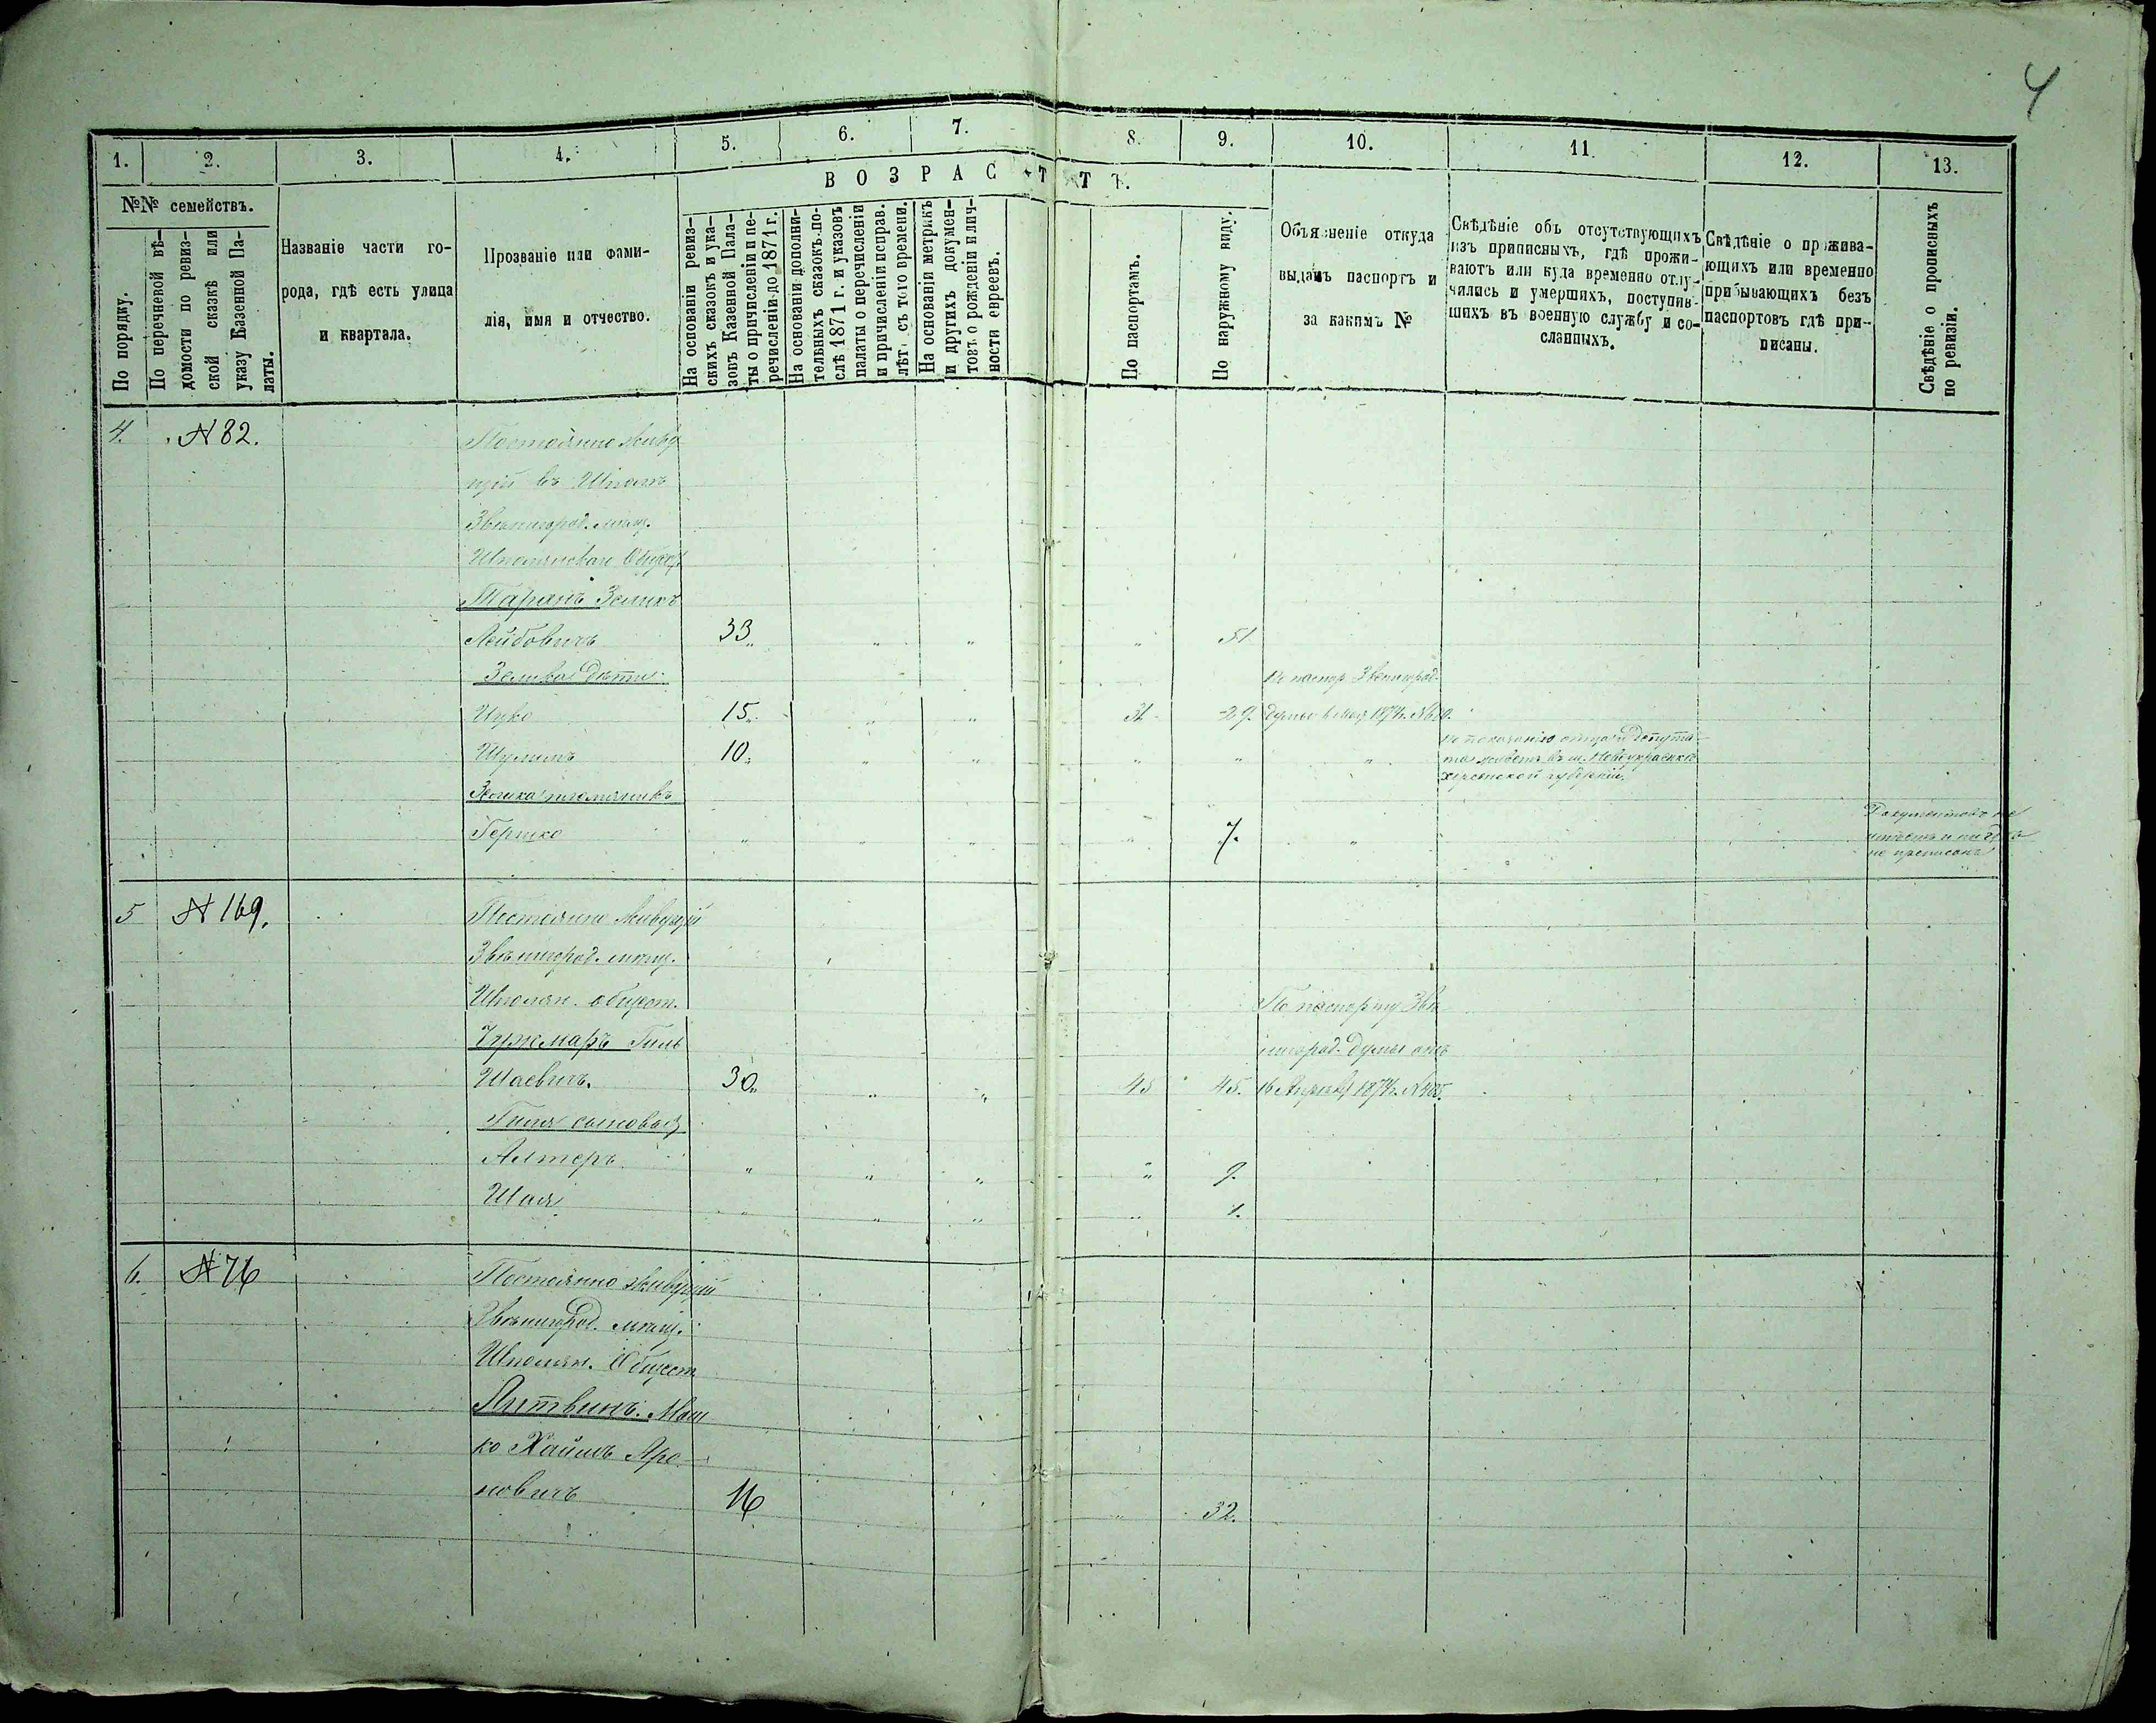 4
1. 2. 3. 4. 5. 6. 7. 8. 9. 10. 11. 12. 13.
ВОЗРАСТЪ.
№№ семействъ.
По порядку.
По перечневой вѣ-
домости по ревиз-
ской сказкѣ или
указу Казенной Па-
латы.
Названіе части го-
рода, гдѣ есть улица
и квартала.
Прозваніе или фами-
лія, имя и отчество.
На основаніи ревиз-
скихъ сказокъ и ука-
зовъ Казенной Пала-
ты о причисленіи и пе-
речисленіи до 1871 г.
На основаніи дополни-
тельныхъ сказокъ по-
слѣ 1871 г. и указовъ
палаты о перечисленіи
и причисленіи исправ.
лѣт. съ того времени.
На основаніи метрикъ
и другихъ докумен-
товъ о рожденіи и лич-
ности евреевъ.
По паспортамъ.
По наружному виду.
Объясненіе откуда
выданъ паспортъ и
за какимъ №
Свѣдѣніе объ отсутствующихъ
изъ приписныхъ, гдѣ прожи-
ваютъ или куда временно отлу-
чились и умершихъ, поступив-
шихъ въ военную службу и со-
сланныхъ.
Свѣдѣніе о прожива-
ющихъ или временно
прибывающихъ безъ
паспортовъ гдѣ при-
писаны.
Свѣдѣніе о прописныхъ
по ревизіи.
4. №82. Постоянно живу
щій въ Шполѣ
Звенигород. мѣщ.
Шполянскаго Общест
Таранъ Зеликъ
Лейбовичъ 33 " " " 51
Зелика дѣти:
По паспор. Звенигород.
Ицко 15. " " 31 29. Думы 1874г.
Шулимъ 10. " " " " "
по показанію отца и депута
та живетъ въ м. Новоукраинкѣ
Херсонской губерніи.
Зелика племянникъ
Гершко " " " " 7. "
Документовъ не
имѣетъ и нигдѣ
не приписанъ
5 №169. Постоянно живущій
Звенигород. мѣщ.
Шполян. общест.
По паспорту Зве
Чужмаръ Гиль
нигород. Думы отъ
Шаевичъ. 30 " " 45 45. 16 1874г.
Гиля сыновья
Алтеръ " " " " 9.
Шая " " " " 1.
6. №76 Постоянно живущій
Звенигород. мѣщ.
Шполян. Общест
Литвинъ. Мош
ко Хаимъ Аро-
новичъ 16 " 32.